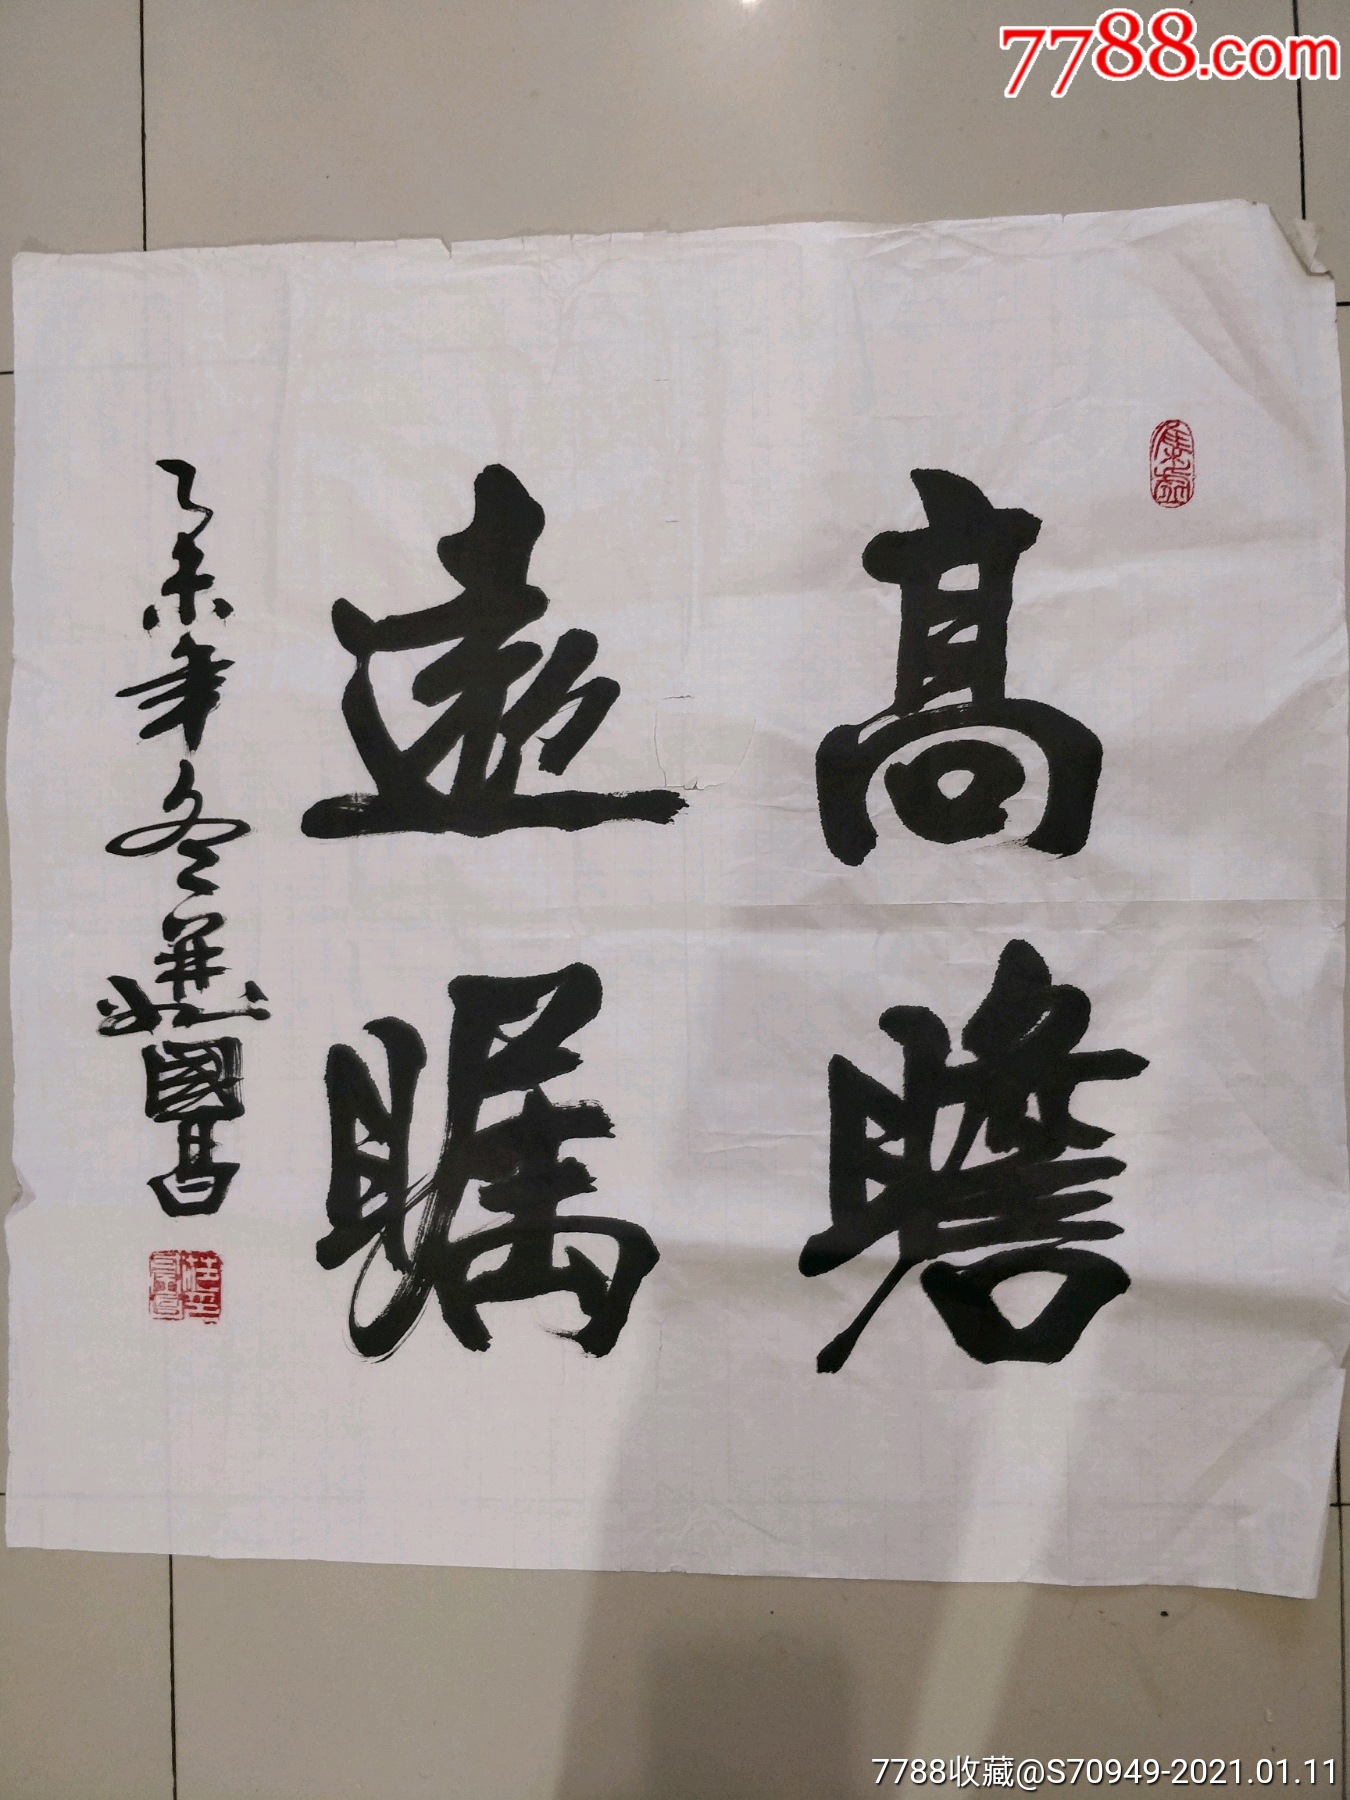 7788.com
高瞻
遠瞩
乙未年冬 國昌
7788收藏@S70949-2021.01.11